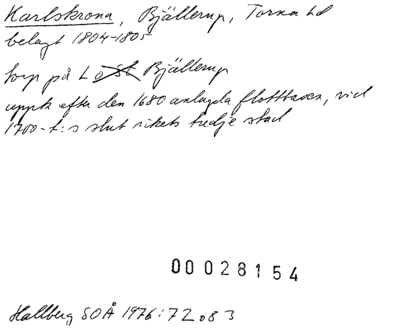 Karlskrona, Bjällerup, Torna hd
belagt 1804-1805
torp på L Bjällerup
uppk efter den 1680 anlagda flottbasen, vid
1700-t:s slut rikets tredje stad
00028154
Hallberg SOÅ 1976:72, 83